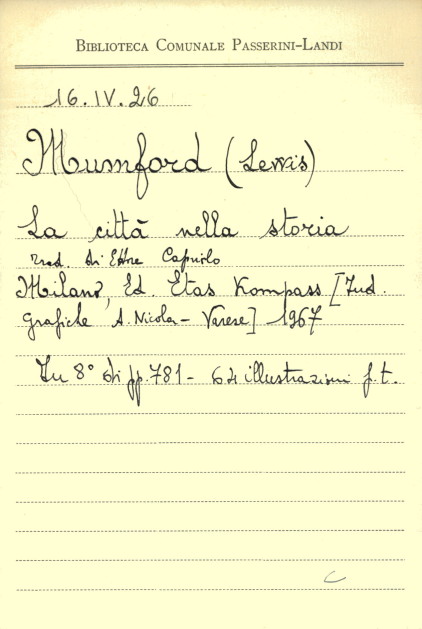 BIBLIOTECA COMUNALE PASSERINI-LANDI
16.IV.26
Mumford (Lewis)
La città nella storia
Trad. di Ettore Capriolo
Milano, Ed Etas Kompass [Ind.
Grafiche A. Nicola - Varese] 1967
In 8° di pp. 781 - 64 illustrazioni f.t.
C